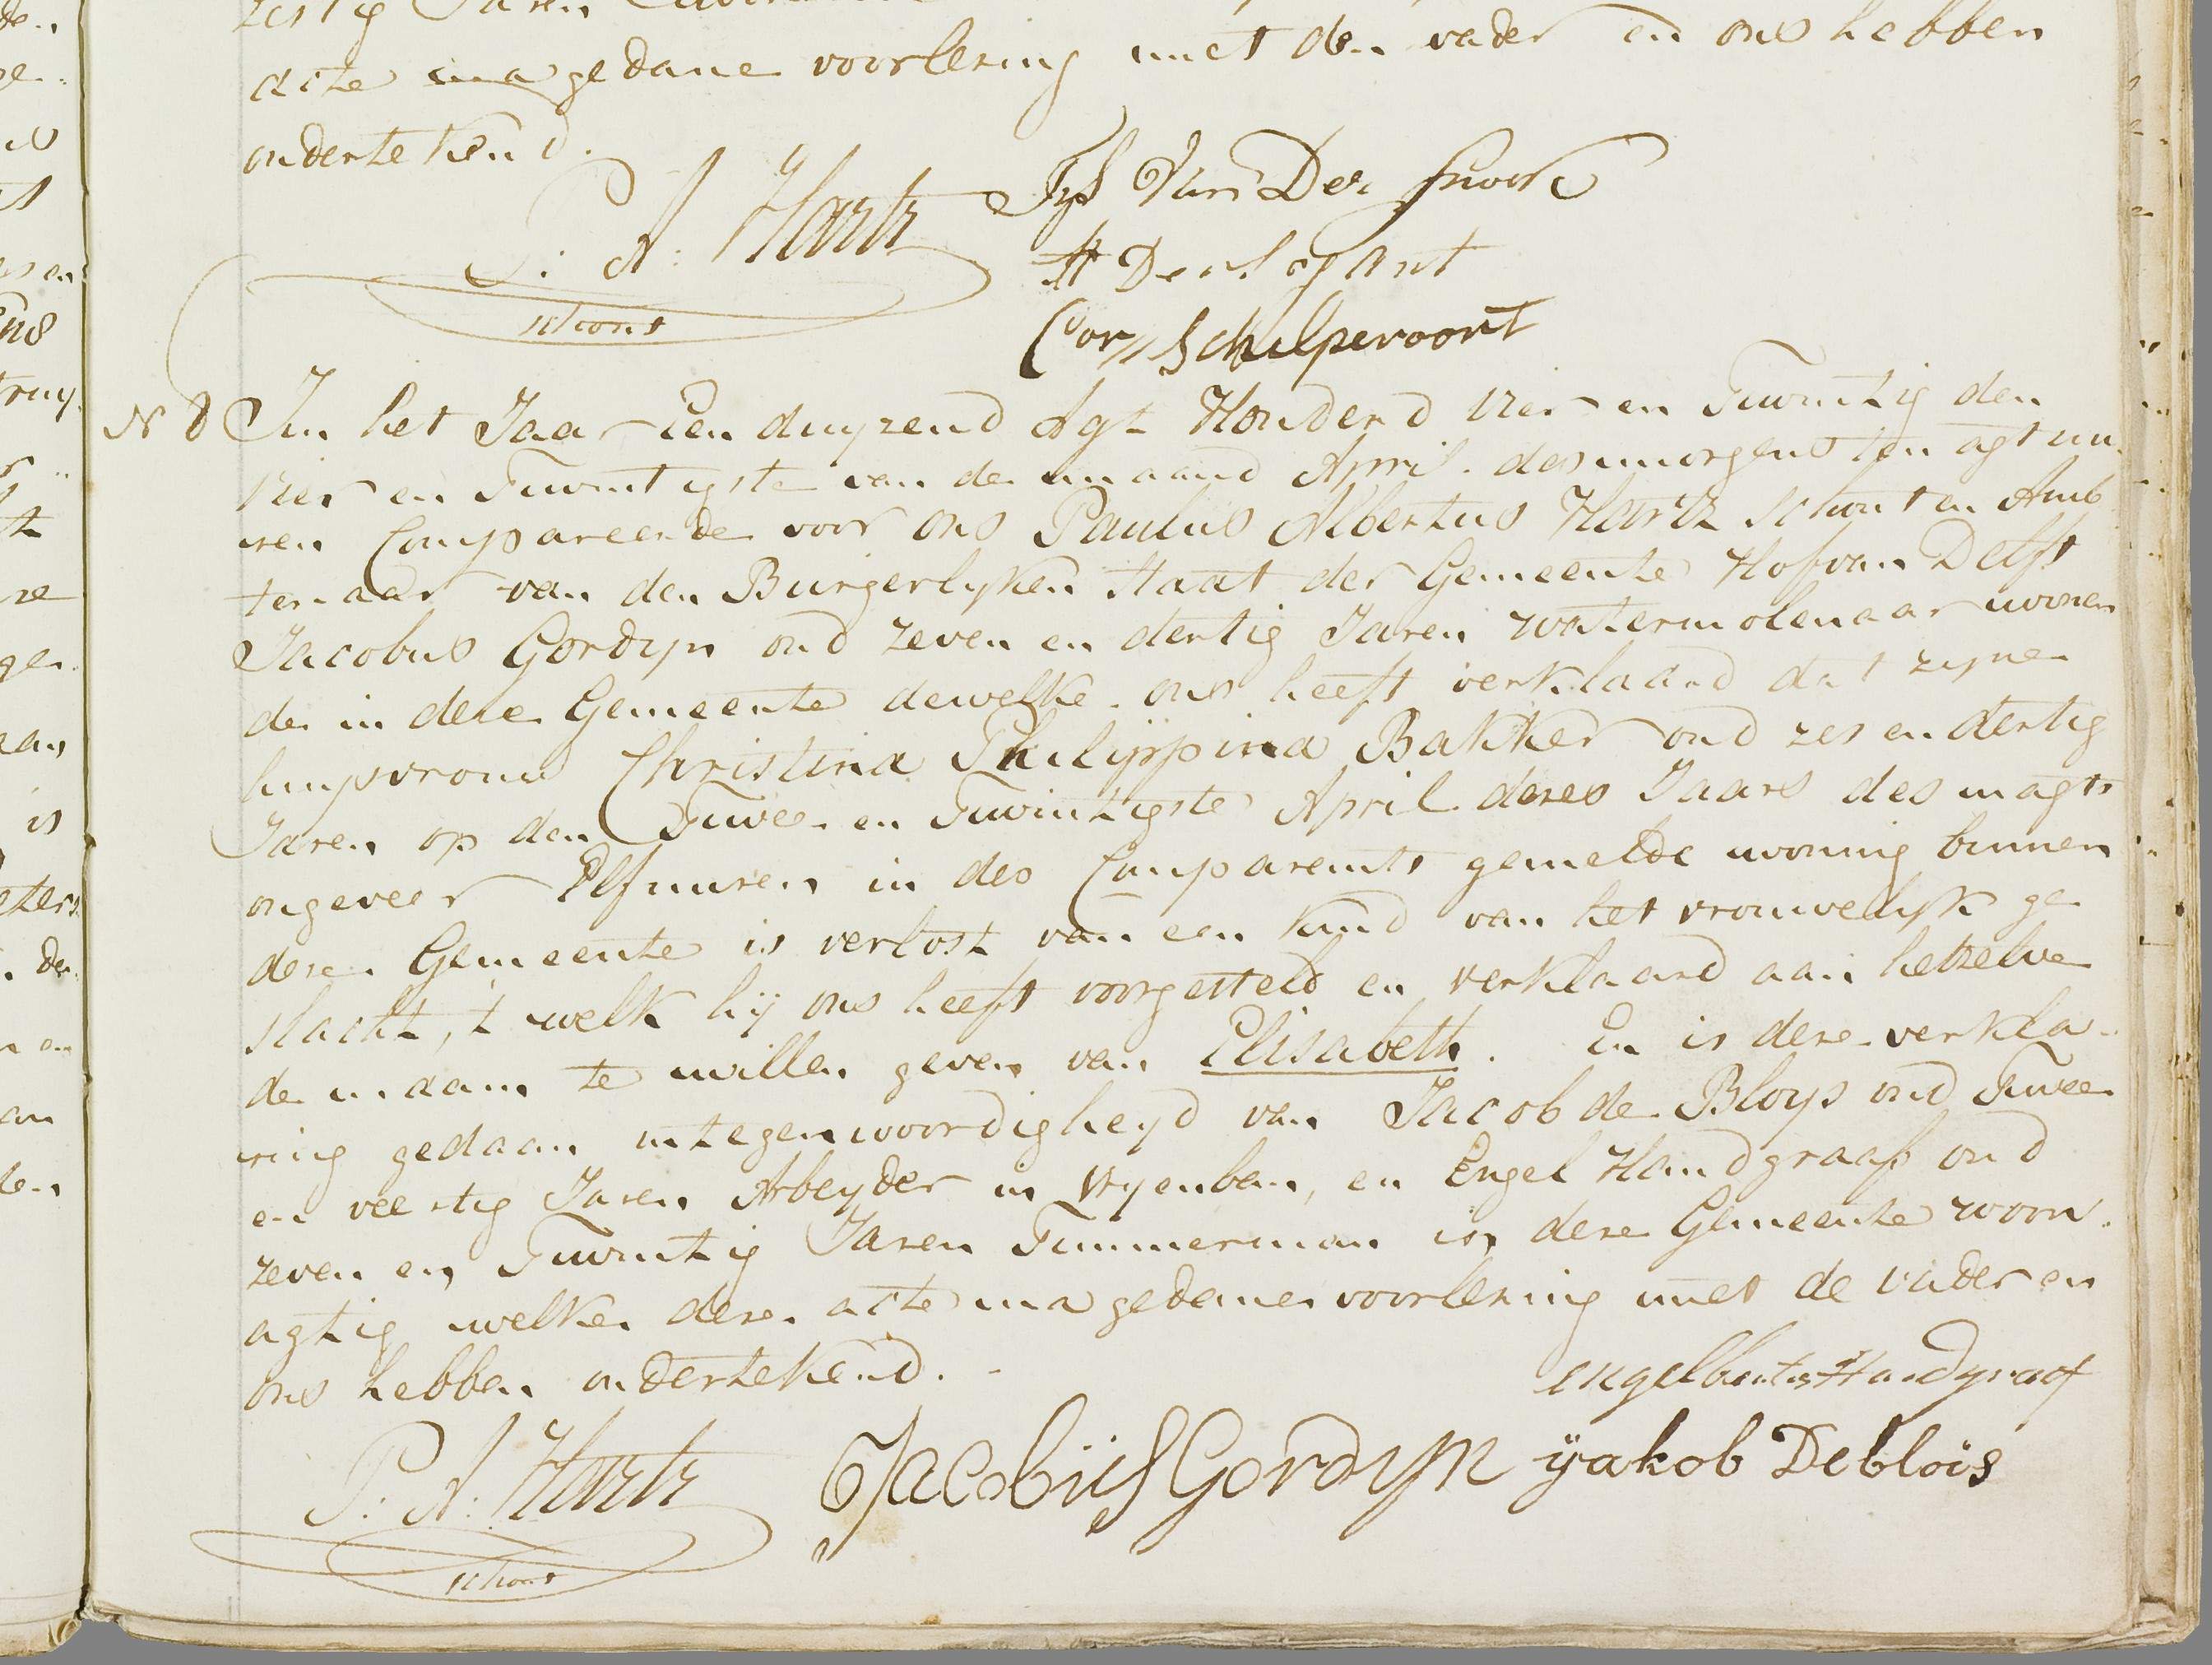 zestig Jaren
acte na gedane voorlezing met den vader en ons hebben
ondertekend.
P: A: Hartz
schout
Van Der
Cor// Schilperoort
N 8 In het Jaar Een duyzend Agt Honderd Vier en Twintig den
Vier en Twintigste van de maand April. des morgens ten agt uu
ren Compareerde voor ons Paulus Albertus Hartz Schout en Amb
tenaar van den Burgerlyken Staat der Gemeente Hof van Delft
Jacobus Gordyn oud zeven en dertig Jaren watermolenaar wonen
de in deze Gemeente dewelke ons heeft verklaard dat zyne
huysvrouw Christina Philippina Bakker oud zes en dertig
Jaren op den Twee en Twintigste April dezes Jaars des nagts
ongeveer Elf uuren in des Comparants gemelde woning binnen
deze Gemeente is verlost van een kind van het vrouwelyk ge
slacht, t welk hij ons heeft voorgesteld en verklaard aan hetzelve
de naam te willen geven van Elisabeth. En is deze verkla-
ring gedaan in tegenwoordigheyd van Jacob de Bloys oud Twee
en veertig Jaren Arbeyder in Vryenban, en Engel Handgraaf oud
zeven en Twintig Jaren Timmerman in deze Gemeente woon
agtig welke deze acte na gedane voorlezing met de vader en
ons hebben ondertekend. -
engelbertus Handgraaf
P: A: Hartz
Jacobus Gordyn
ÿakob Deblois
schout